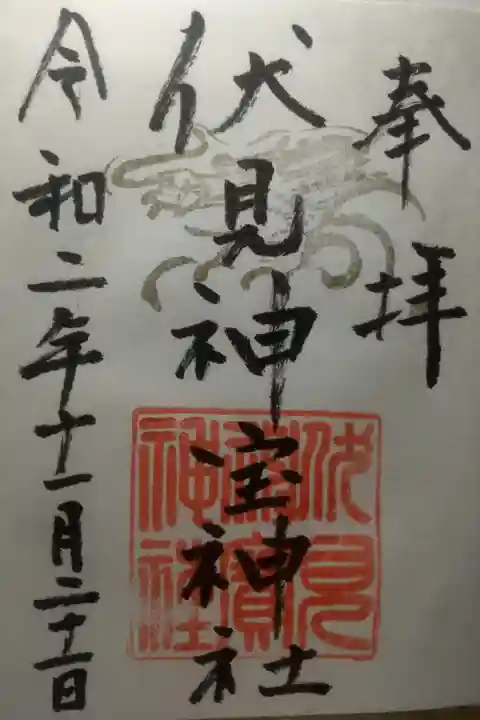 奉拝
伏見神宝神社
伏見神寳神社
令和二年十一月二十二日